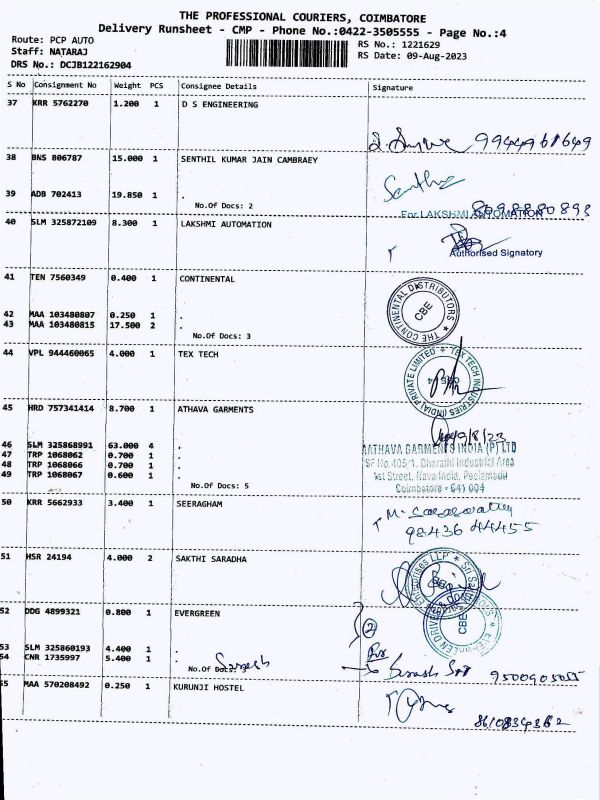 THE PROFESSIONAL COURIERS, COIMBATORE
Delivery Runsheet - CMP - Phone No.:0422-3505555 - Page No.:4
Route: PCP AUTO
RS No.: 1221629
Staff: NATARAJ
RS Date: 09-Aug-2023
DRS No.: DCJB122162904
S No Consignment No Weight PCS Consignee Details Signature
37 KRR 5762270 1.200 1 D S ENGINEERING
9944961649
38 BNS 806787 15.000 1 SENTHIL KUMAR JAIN CAMBRAEY
39 ADB 702413 19.850 1 .
No.Of Docs: 2
For LAKSHMI AUTOMATION
40 SLM 325872109 8.300 1 LAKSHMI AUTOMATION
Authorised Signatory
41 TEN 7560349 0.400 1 CONTINENTAL
THE CONTINENTAL DISTRIBUTORS
CBE
42 MAA 103480807 0.250 1 .
43 MAA 103480815 17.500 2 .
No.Of Docs: 3
44 VPL 944460065 4.000 1 TEX TECH
TEX TECH INDUSTRIES (INDIA) PRIVATE LIMITED
45 HRD 757341414 8.700 1 ATHAVA GARMENTS
9/8/23
AATHAVA GARMENTS INDIA (P) LTD
46 SLM 325868991 63.000 4 .
47 TRP 1068062 0.700 1 .
SF No.405/1, Bharathi Industrial Area
48 TRP 1068066 0.700 1 .
49 TRP 1068067 0.600 1 .
1st Street, Nava India, Peelamedu
No.Of Docs: 5
Coimbatore - 641 004
50 KRR 5662933 3.400 1 SEERAGHAM
98436 44455
51 HSR 24194 4.000 2 SAKTHI SARADHA
52 DDG 4899321 0.800 1 EVERGREEN
CBE
2
53 SLM 325860193 4.400 1 .
54 CNR 1735997 5.400 1 .
No.Of Docs: 3
55 MAA 570208492 0.250 1 KURUNJI HOSTEL